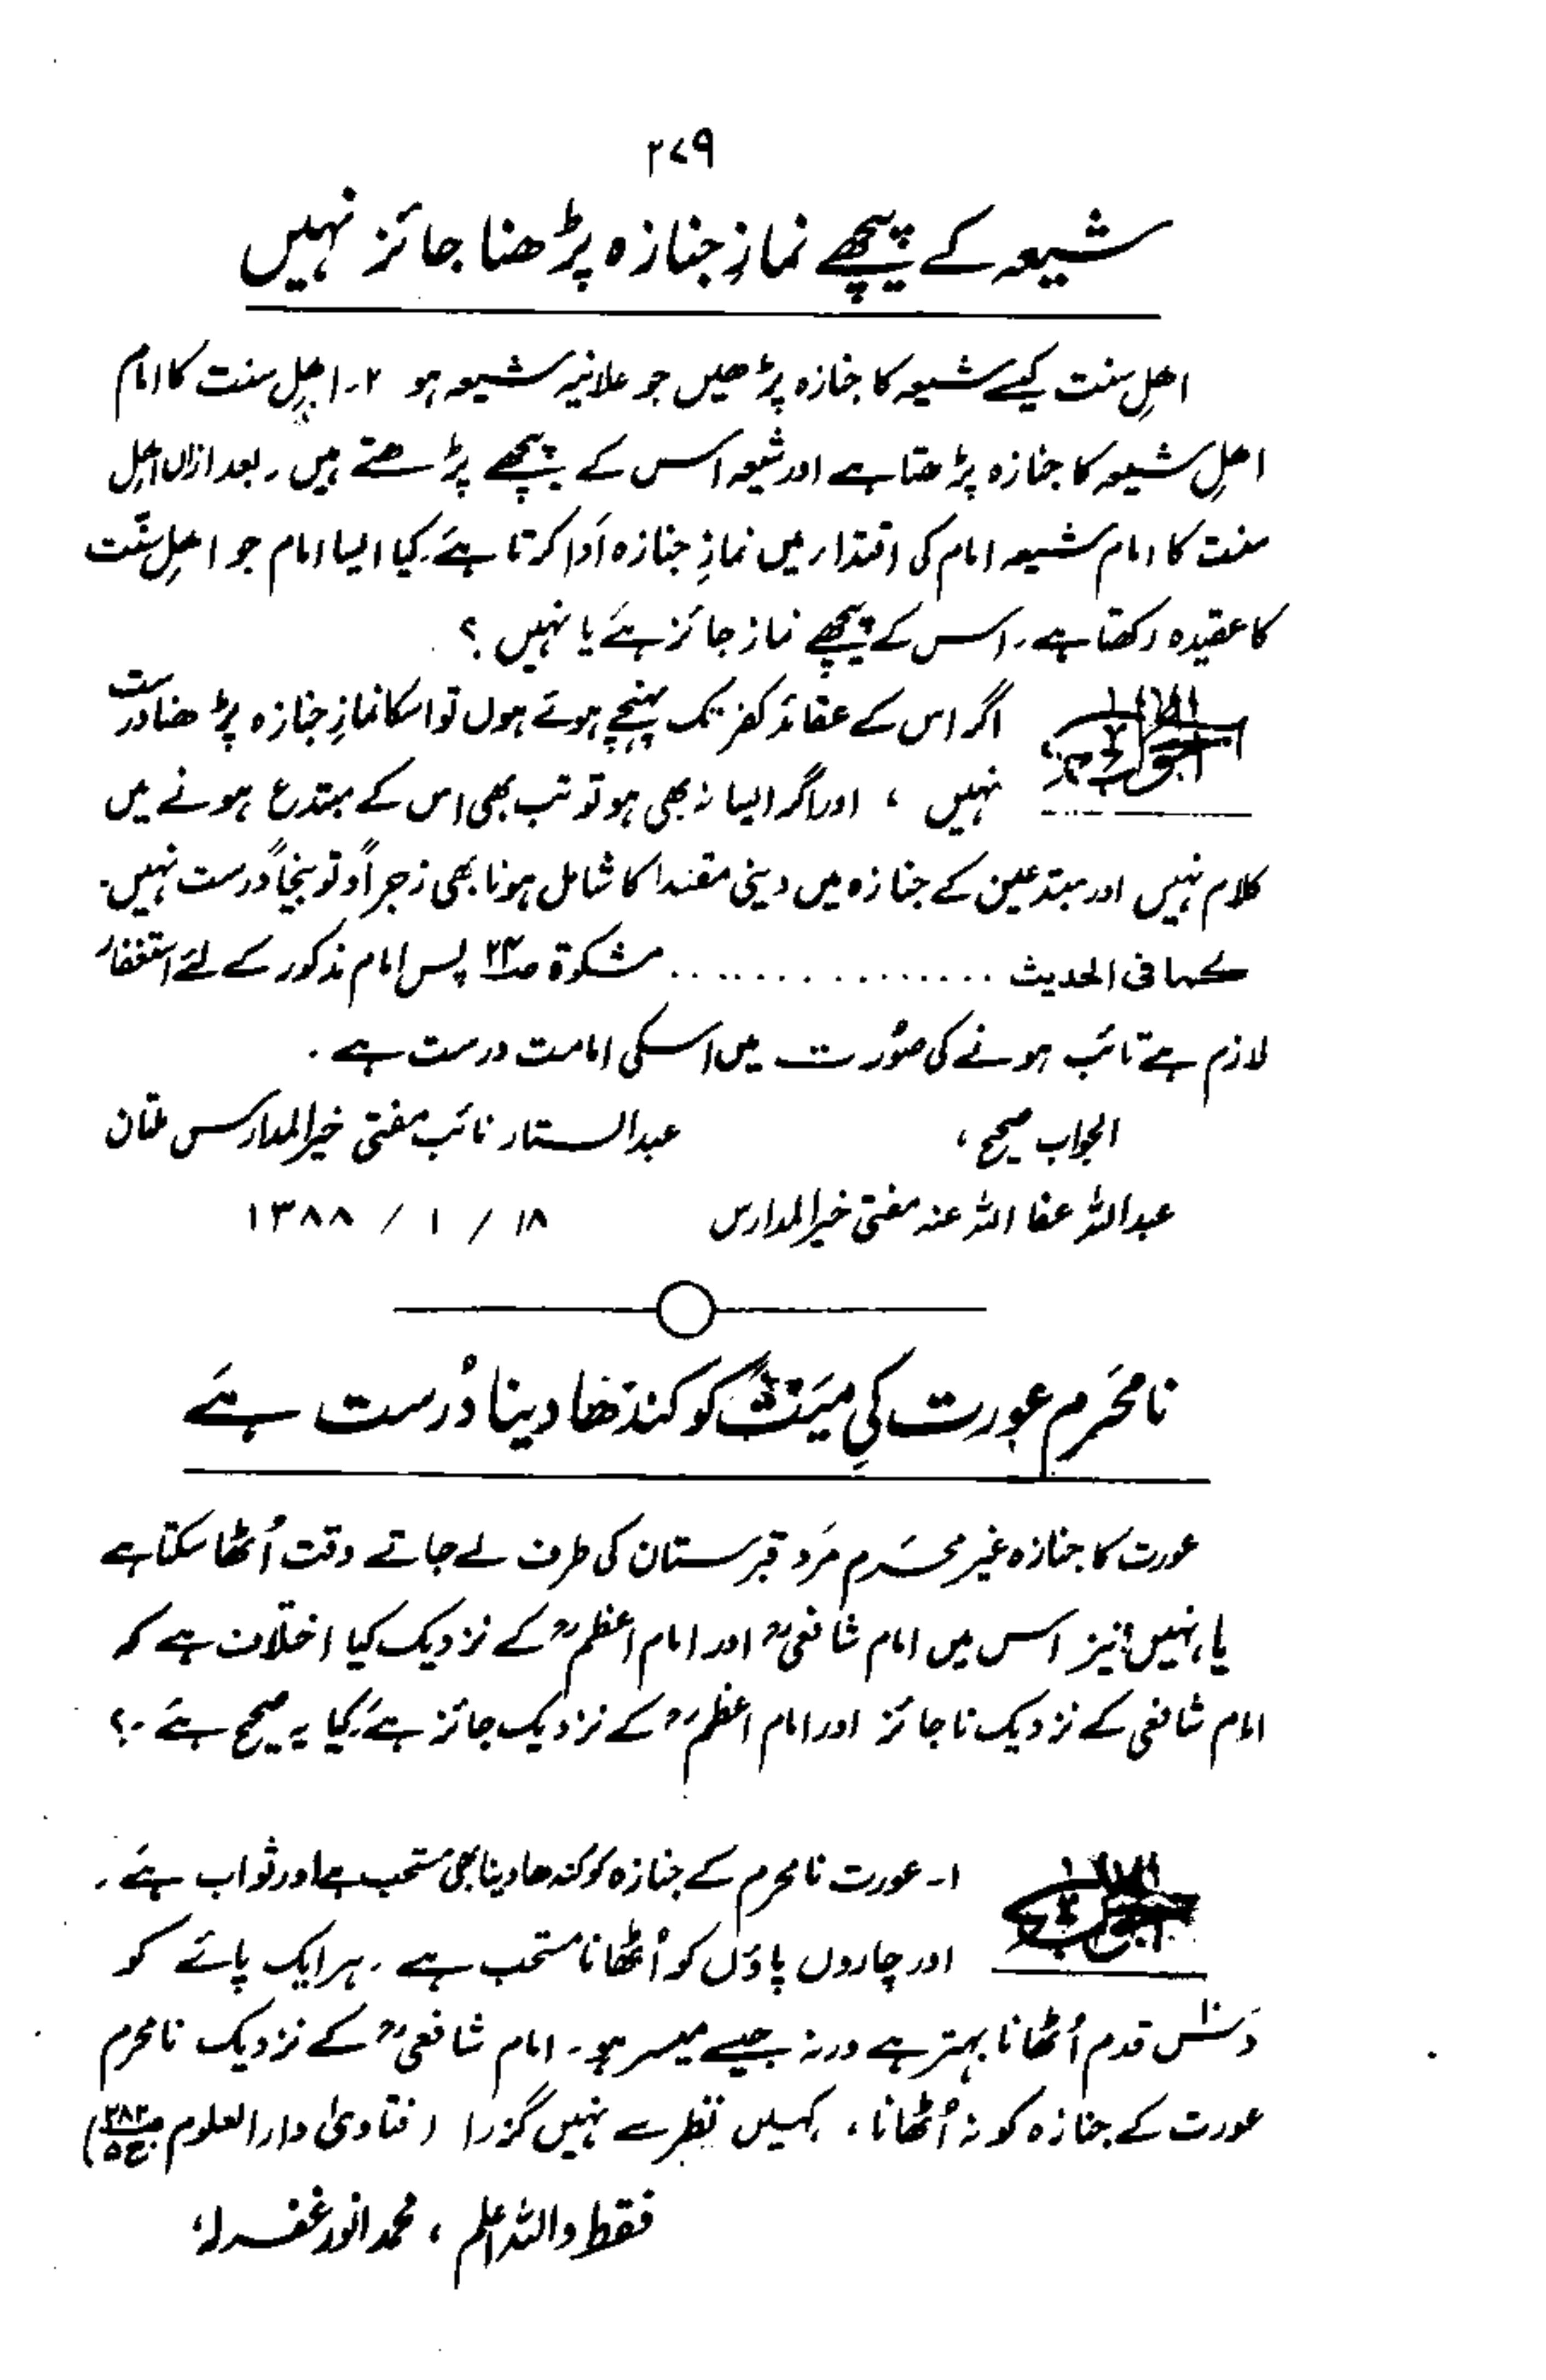 ۲۷۹
شیعہ کے پیچھے نمازِ جنازہ پڑھنا جائز نہیں
اھلِ سنت کیسے شیعہ کا جنازہ پڑھیں جو علانیہ شیعہ ہو ۲۔ اھلِ سنت کا امام
اھلِ شیعہ کا جنازہ پڑھتا ہے اور شیعہ اس کے پیچھے پڑھتے ہیں۔ بعد ازاں اھل
سنت کا امام شیعہ امام کی اقتداء میں نمازِ جنازہ اَدا کرتا ہے۔ کیا ایسا امام جو اھلِ سنّت
کا عقیدہ رکھتا ہے۔ اس کے پیچھے نماز جائز ہے یا نہیں ؟
الجواب
اگر اس کے عقائد کفر تک پہنچے ہوئے ہوں تو اسکا نمازِ جنازہ پڑھنا درست
نہیں ، اور اگر ایسا نہ بھی ہو تو تب بھی اس کے مبتدع ہونے میں
کلام نہیں اور مبتدعین کے جنازہ میں دینی مقتدا کا شامل ہونا بھی زجراً و توبیخاً درست نہیں۔
کما فی الحدیث ............... مشکوٰۃ ص۲۲ پس امام مذکور کے لئے استغفار
لازم ہے تائب ہونے کی صوُرت میں اسکی امامت درست ہے ۔
الجواب صحیح ، عبدالستار نائب مفتی خیرالمدارس ملتان
عبداللہ عفا اللہ عنہ مفتی خیرالمدارس ۱۸ / ۱ / ۱۳۸۸
نامحَرم عورت کی میّت کو کندھا دینا دُرست ہے
عورت کا جنازہ غیر محرم مَرد قبرستان کی طرف لے جاتے وقت اُٹھا سکتا ہے
یا نہیں؟ نیز اس میں امام شافعیؒ اور امام اعظمؒ کے نزدیک کیا اختلاف ہے کہ
امام شافعی کے نزدیک ناجائز اور امام اعظمؒ کے نزدیک جائز ہے۔ کیا یہ صحیح ہے ۔؟
الجواب
۱۔ عورت نامحرم کے جنازہ کو کندھا دینا بھی مستحب ہے اور ثواب ہے ۔
اور چاروں پاؤں کو اُٹھانا مستحب ہے ۔ ہر ایک پائے کو
دَس قدم اُٹھانا بہتر ہے ورنہ جیسے میسر ہو۔ امام شافعیؒ کے نزدیک نامحرم
عورت کے جنازہ کو نہ اُٹھانا ، کہیں نظر سے نہیں گزرا ( فتاویٰ دارالعلوم ص۲۸۲ ج۵ )
فقط واللہ اعلم ، محمد انور غفرلہ ،